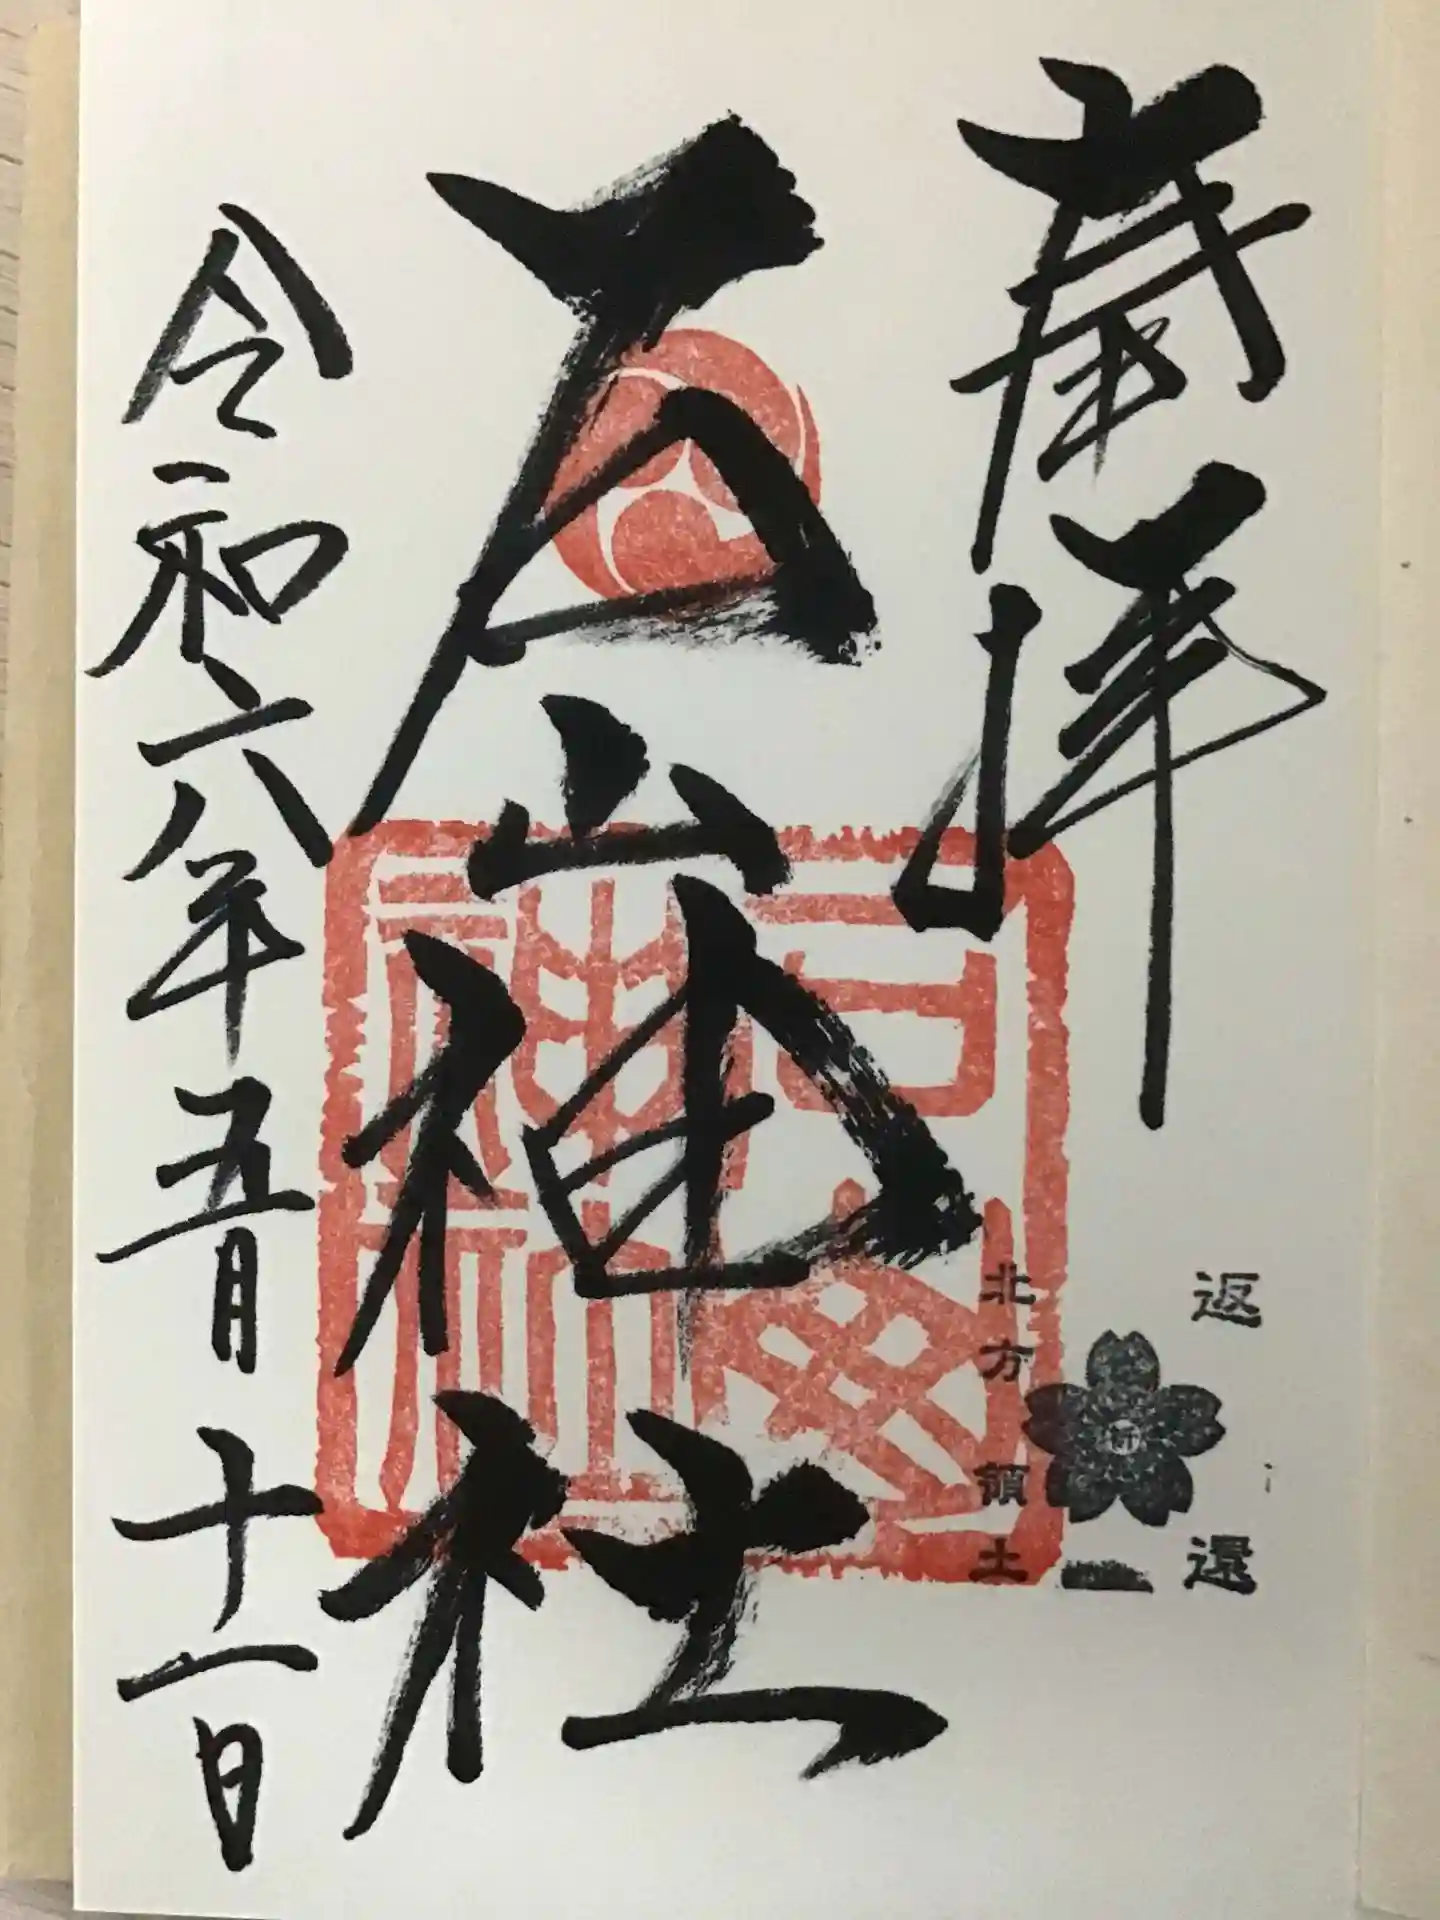 歳拝
石山神社
令和六年五月十一日
返還
北方領土